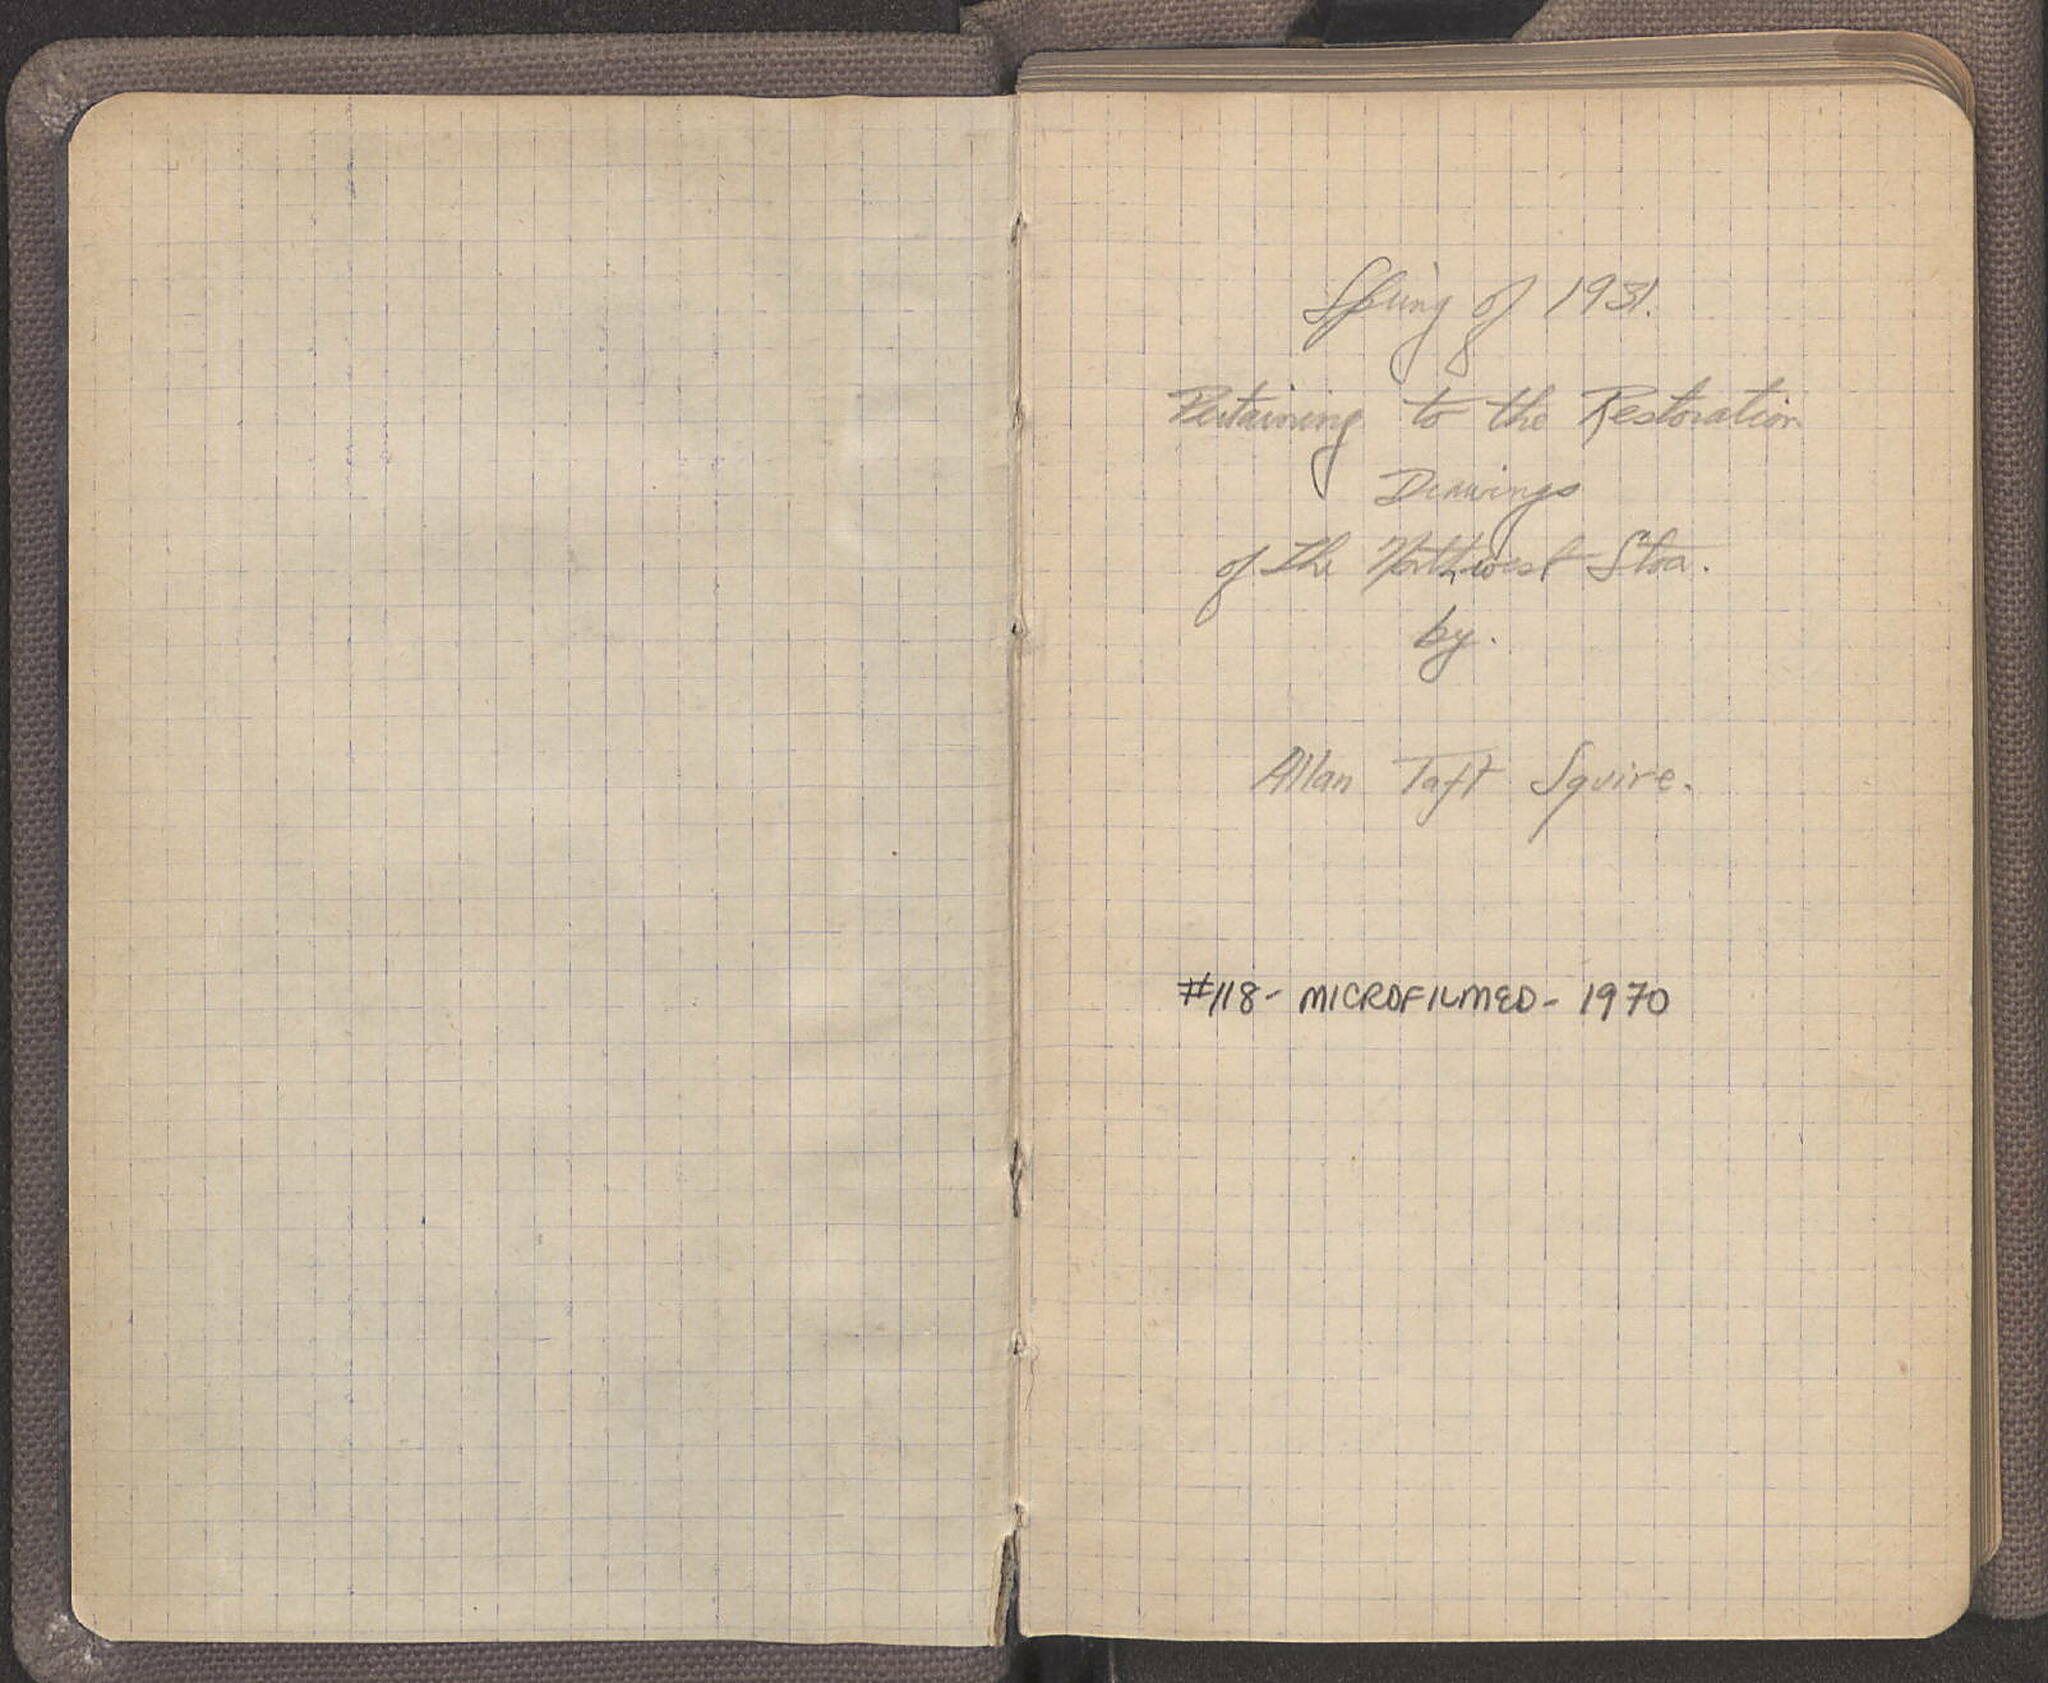 Spring of 1931.
Pertaining to the Restoration
Drawings
of the Northwest Stoa.
by.
Allan Taft Squire.
#118- MICROFILMED- 1970